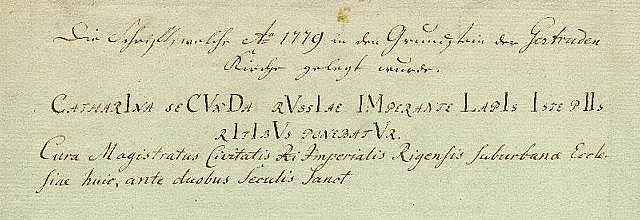 Die Schrift, welche Aº 1779 in den Grundstein der Gertruden
Kirche gelegt wurde.
CATHARINA SECUNDA RUSSIAE IMPERANTE LAPIS ISTE PIIS
RITIBUS PONEBATUR.
Cura Magistratus Civitatis Imperialis Rigensis suburbanae Eccle-
siae huic, ante duobus Seculis Sanct